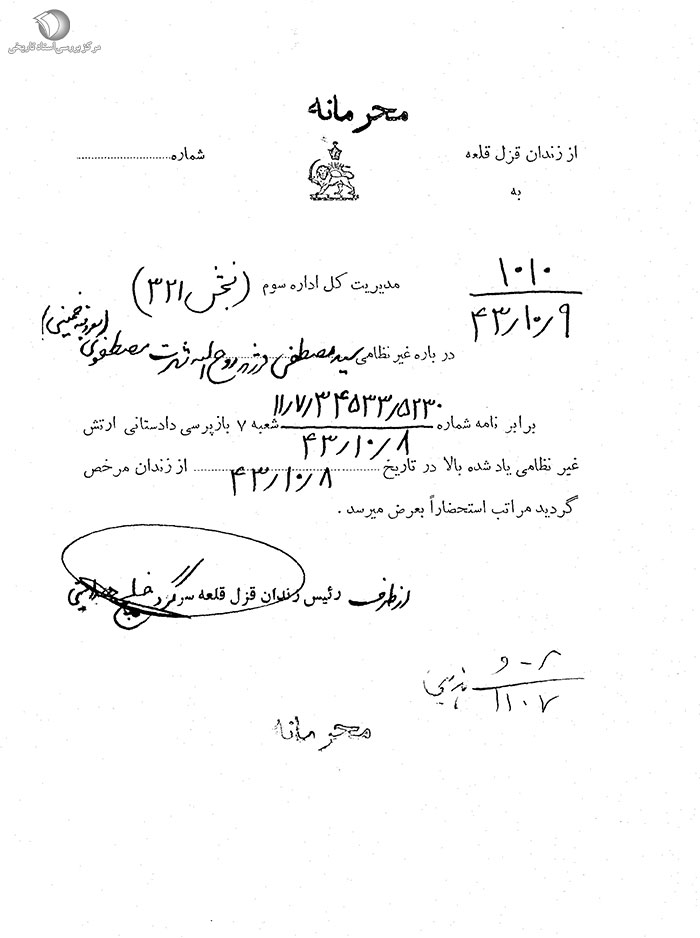 مرکز بررسی اسناد تاریخی
محرمانه
از زندان قزل قلعه
شماره
به
۱۰۱۰
۴۳/۱۰/۹
مدیریت کل اداره سوم (بخش ۳۲۱)
در باره غیر نظامی سید مصطفی فرزند روح اله شهرت مصطفوی (معروف به خمینی)
برابر نامه شماره ۱۱/۷/۳۴۵۳۳/۵۲۳۰
۴۳/۱۰/۸ شعبه ۷ بازپرسی دادستانی ارتش
غیر نظامی یاد شده بالا در تاریخ ۴۳/۱۰/۸ از زندان مرخص
گردید مراتب استحضاراً بعرض میرسد .
از طرف رئیس زندان قزل قلعه سرگرد
۱۱۰۷
محرمانه